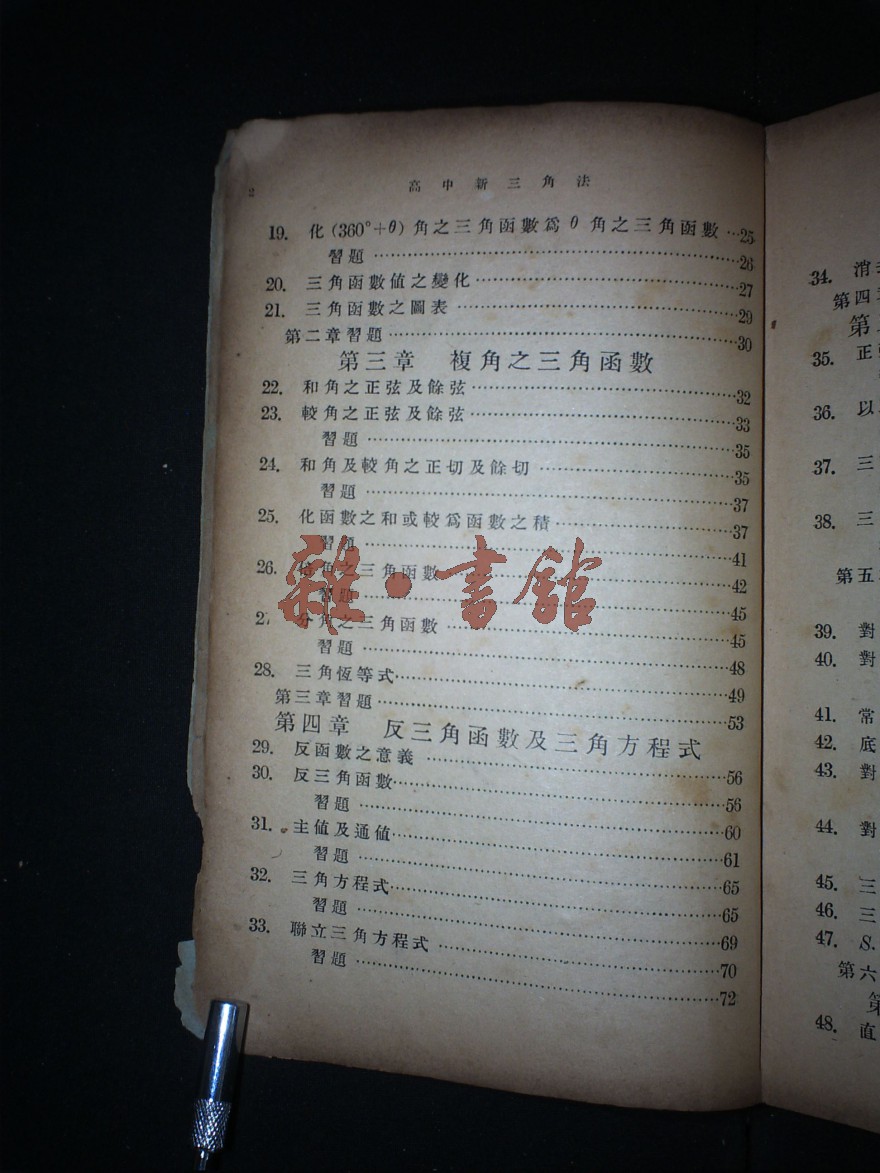 2
高中新三角法
19. 化(360°+θ)角之三角函數爲θ角之三角函數…25
習題……26
20. 三角函數値之變化……27
21. 三角函數之圖表……29
第二章習題……30
第三章 複角之三角函數
22. 和角之正弦及餘弦……32
23. 較角之正弦及餘弦……33
習題……35
24. 和角及較角之正切及餘切……35
習題……37
25. 化函數之和或較爲函數之積……37
習題……41
26. 倍角之三角函數……42
習題……45
27 分角之三角函數……45
習題……48
28. 三角恆等式……49
第三章習題……53
第四章 反三角函數及三角方程式
29. 反函數之意義……56
30. 反三角函數……56
習題……60
31. 主値及通値……61
習題……65
32. 三角方程式……65
習題……69
33. 聯立三角方程式……70
習題……72
雜·書館
34. 消
第四
第
35. 正
36. 以
37. 三
38. 三
第五
39. 對
40. 對
41. 常
42. 底
43. 對
44. 對
45. 三
46. 三
47. S.
第六
第
48. 直